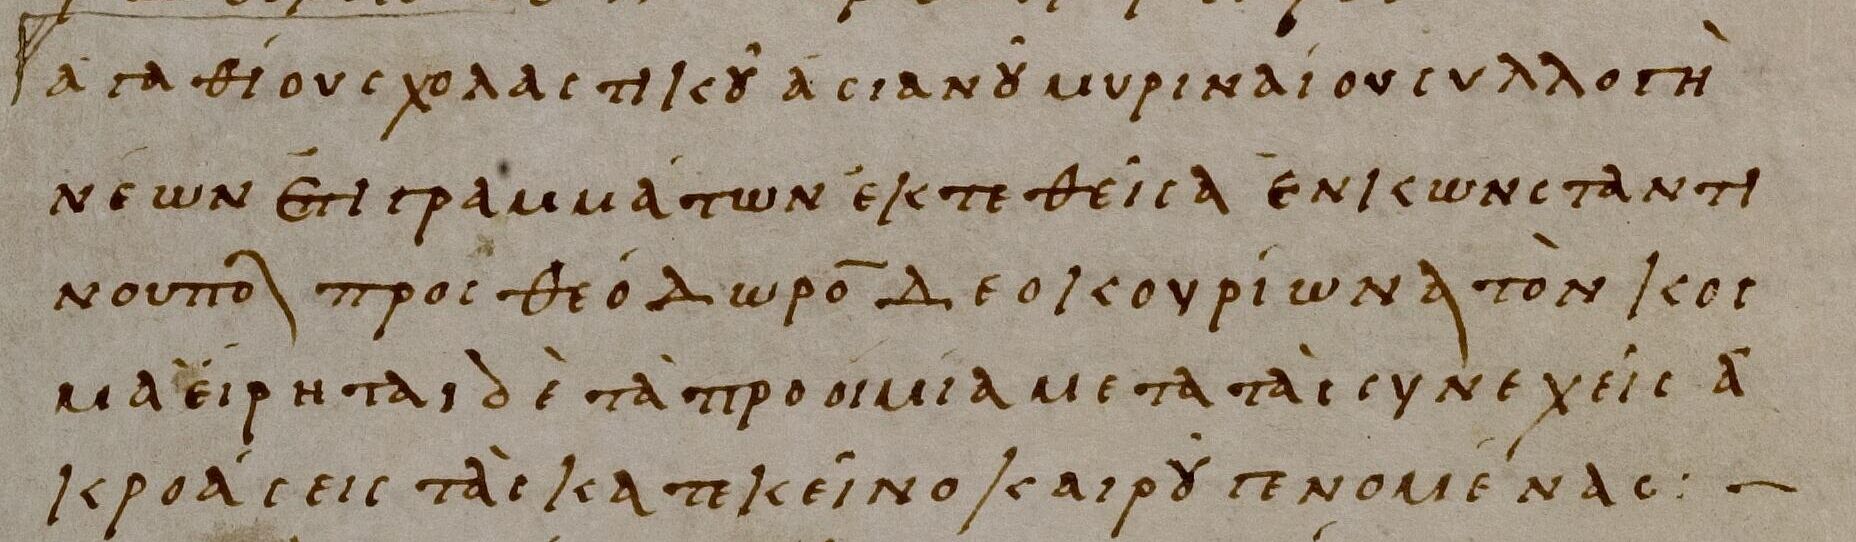 ἀγαθίου σχολαστικοῦ ἀσιανοῦ μυριναίου συλλογὴ
νέων ἐπιγραμμάτων ἐκτεθεῖσα ἐν κωνσταντι
νουπολ προς θεόδωρο̅ δεκουρίωνα τὸν κοσ
μα εἴρηται δὲ τὰ προοίμια μετα τὰς συνεχεῖς ἀ
κροάσεις τὰς κατεκεῖνο καιροῦ γενομένας: ~